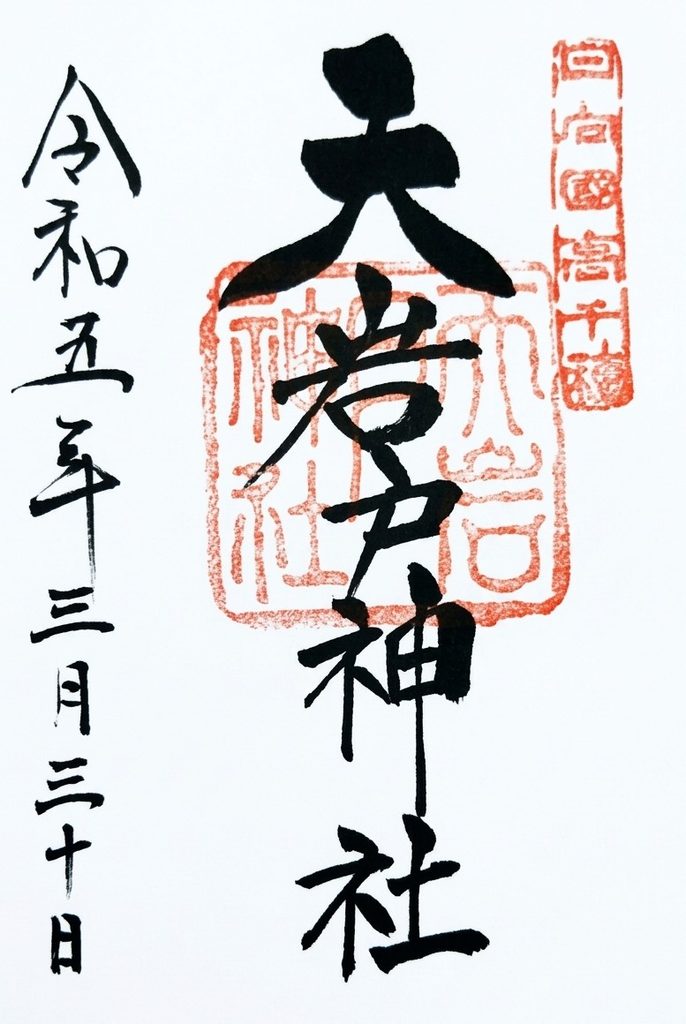 日向國高千穗
天岩戸神社
天岩戸神社
令和五年三月三十日